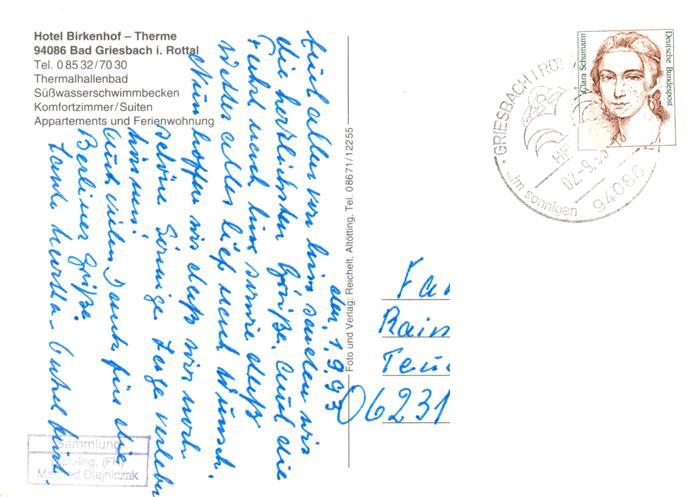 Hotel Birkenhof – Therme
94086 Bad Griesbach i. Rottal
Tel. 0 85 32/70 30
Thermalhallenbad
Süßwasserschwimmbecken
Komfortzimmer/Suiten
Appartements und Ferienwohnung
den, 1.9.93
Euch allen von hier senden wir
die herzlichsten Grüße. Auch die
Fahrt nach hier sowie das
Wetter alles lief nach Wunsch.
Nun hoffen wir daß wir noch
schöne Tage verleben
können!
Auch vielen Dank für die
Berliner Grüße
Tante Onkel
Foto und Verlag: Reichelt, Altötting, Tel. 08671/12255
Clara Schumann
Deutsche Bundespost
GRIESBACH I ROT
02.-9.93
94086
...im sonnigen
Fa
Rain
Teu
06231
Sammlung
Ing. (FH)
Manfred Olejniczak